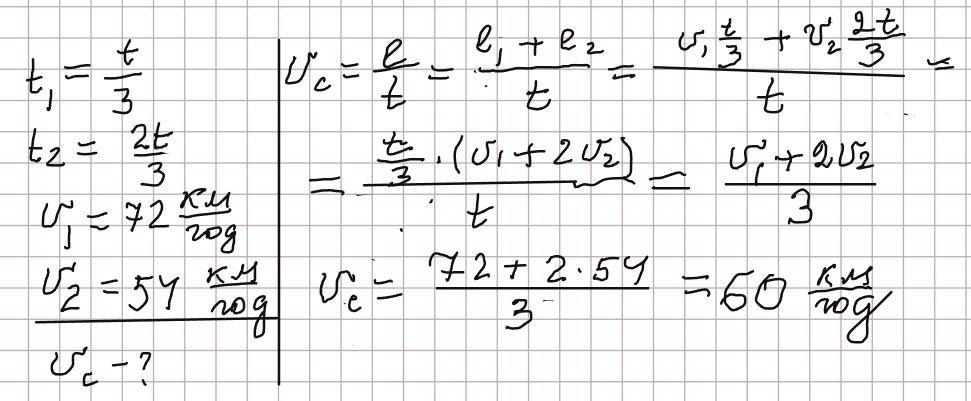 t₁ = t/3
t₂ = 2t/3
υ₁ = 72 км/год
υ₂ = 54 км/год
υc - ?
υc = l/t = (l₁ + l₂)/t = (υ₁ t/3 + υ₂ 2t/3)/t =
= (t/3 · (υ₁ + 2υ₂))/t = (υ₁ + 2υ₂)/3
υc = (72 + 2·54)/3 = 60 км/год